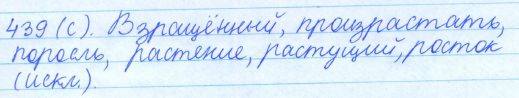 439 (с). Взращённый, произрастать,
поросль, растение, растущий, росток
(искл.).